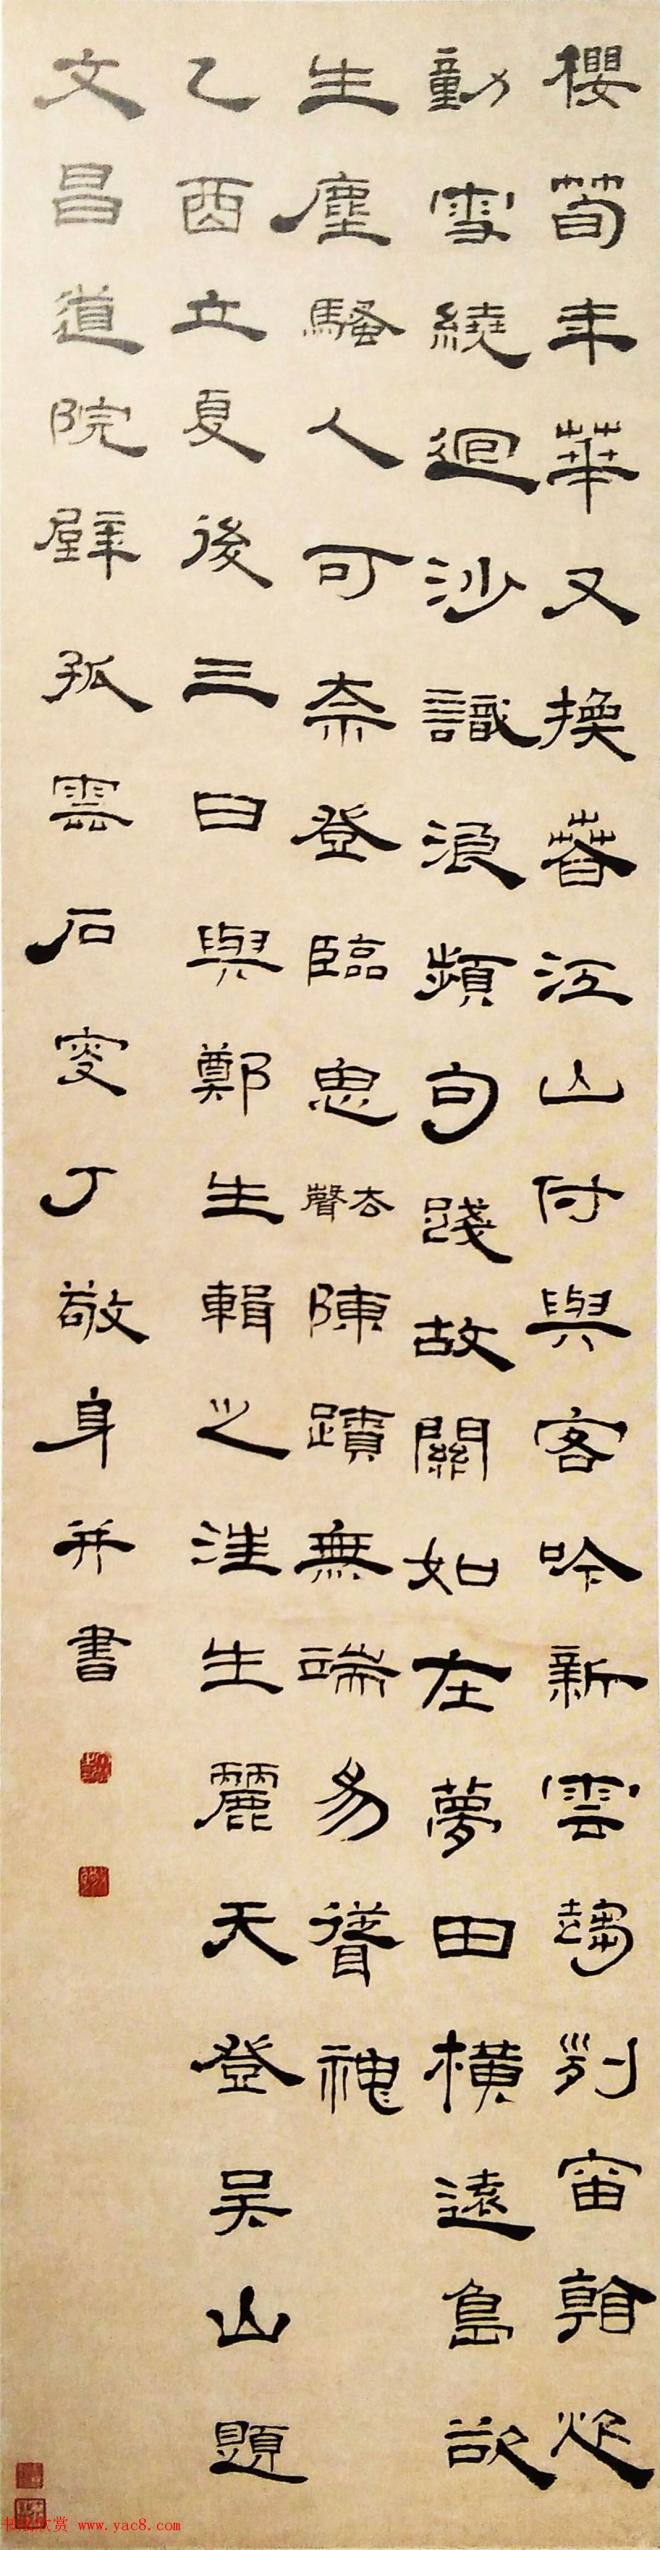 櫻筍年華又換春江山付與客吟新雲趨列宙翰飛
動雪繞迴沙識浪頻句踐故關如在夢田橫遠島欲
生塵騷人可奈登臨思去聲陳蹟無端易簪神
乙酉立夏後三日與鄭生輯之汪生麗天登吳山題
文昌道院壁孤雲石叟丁敬身并書
www.yac8.com